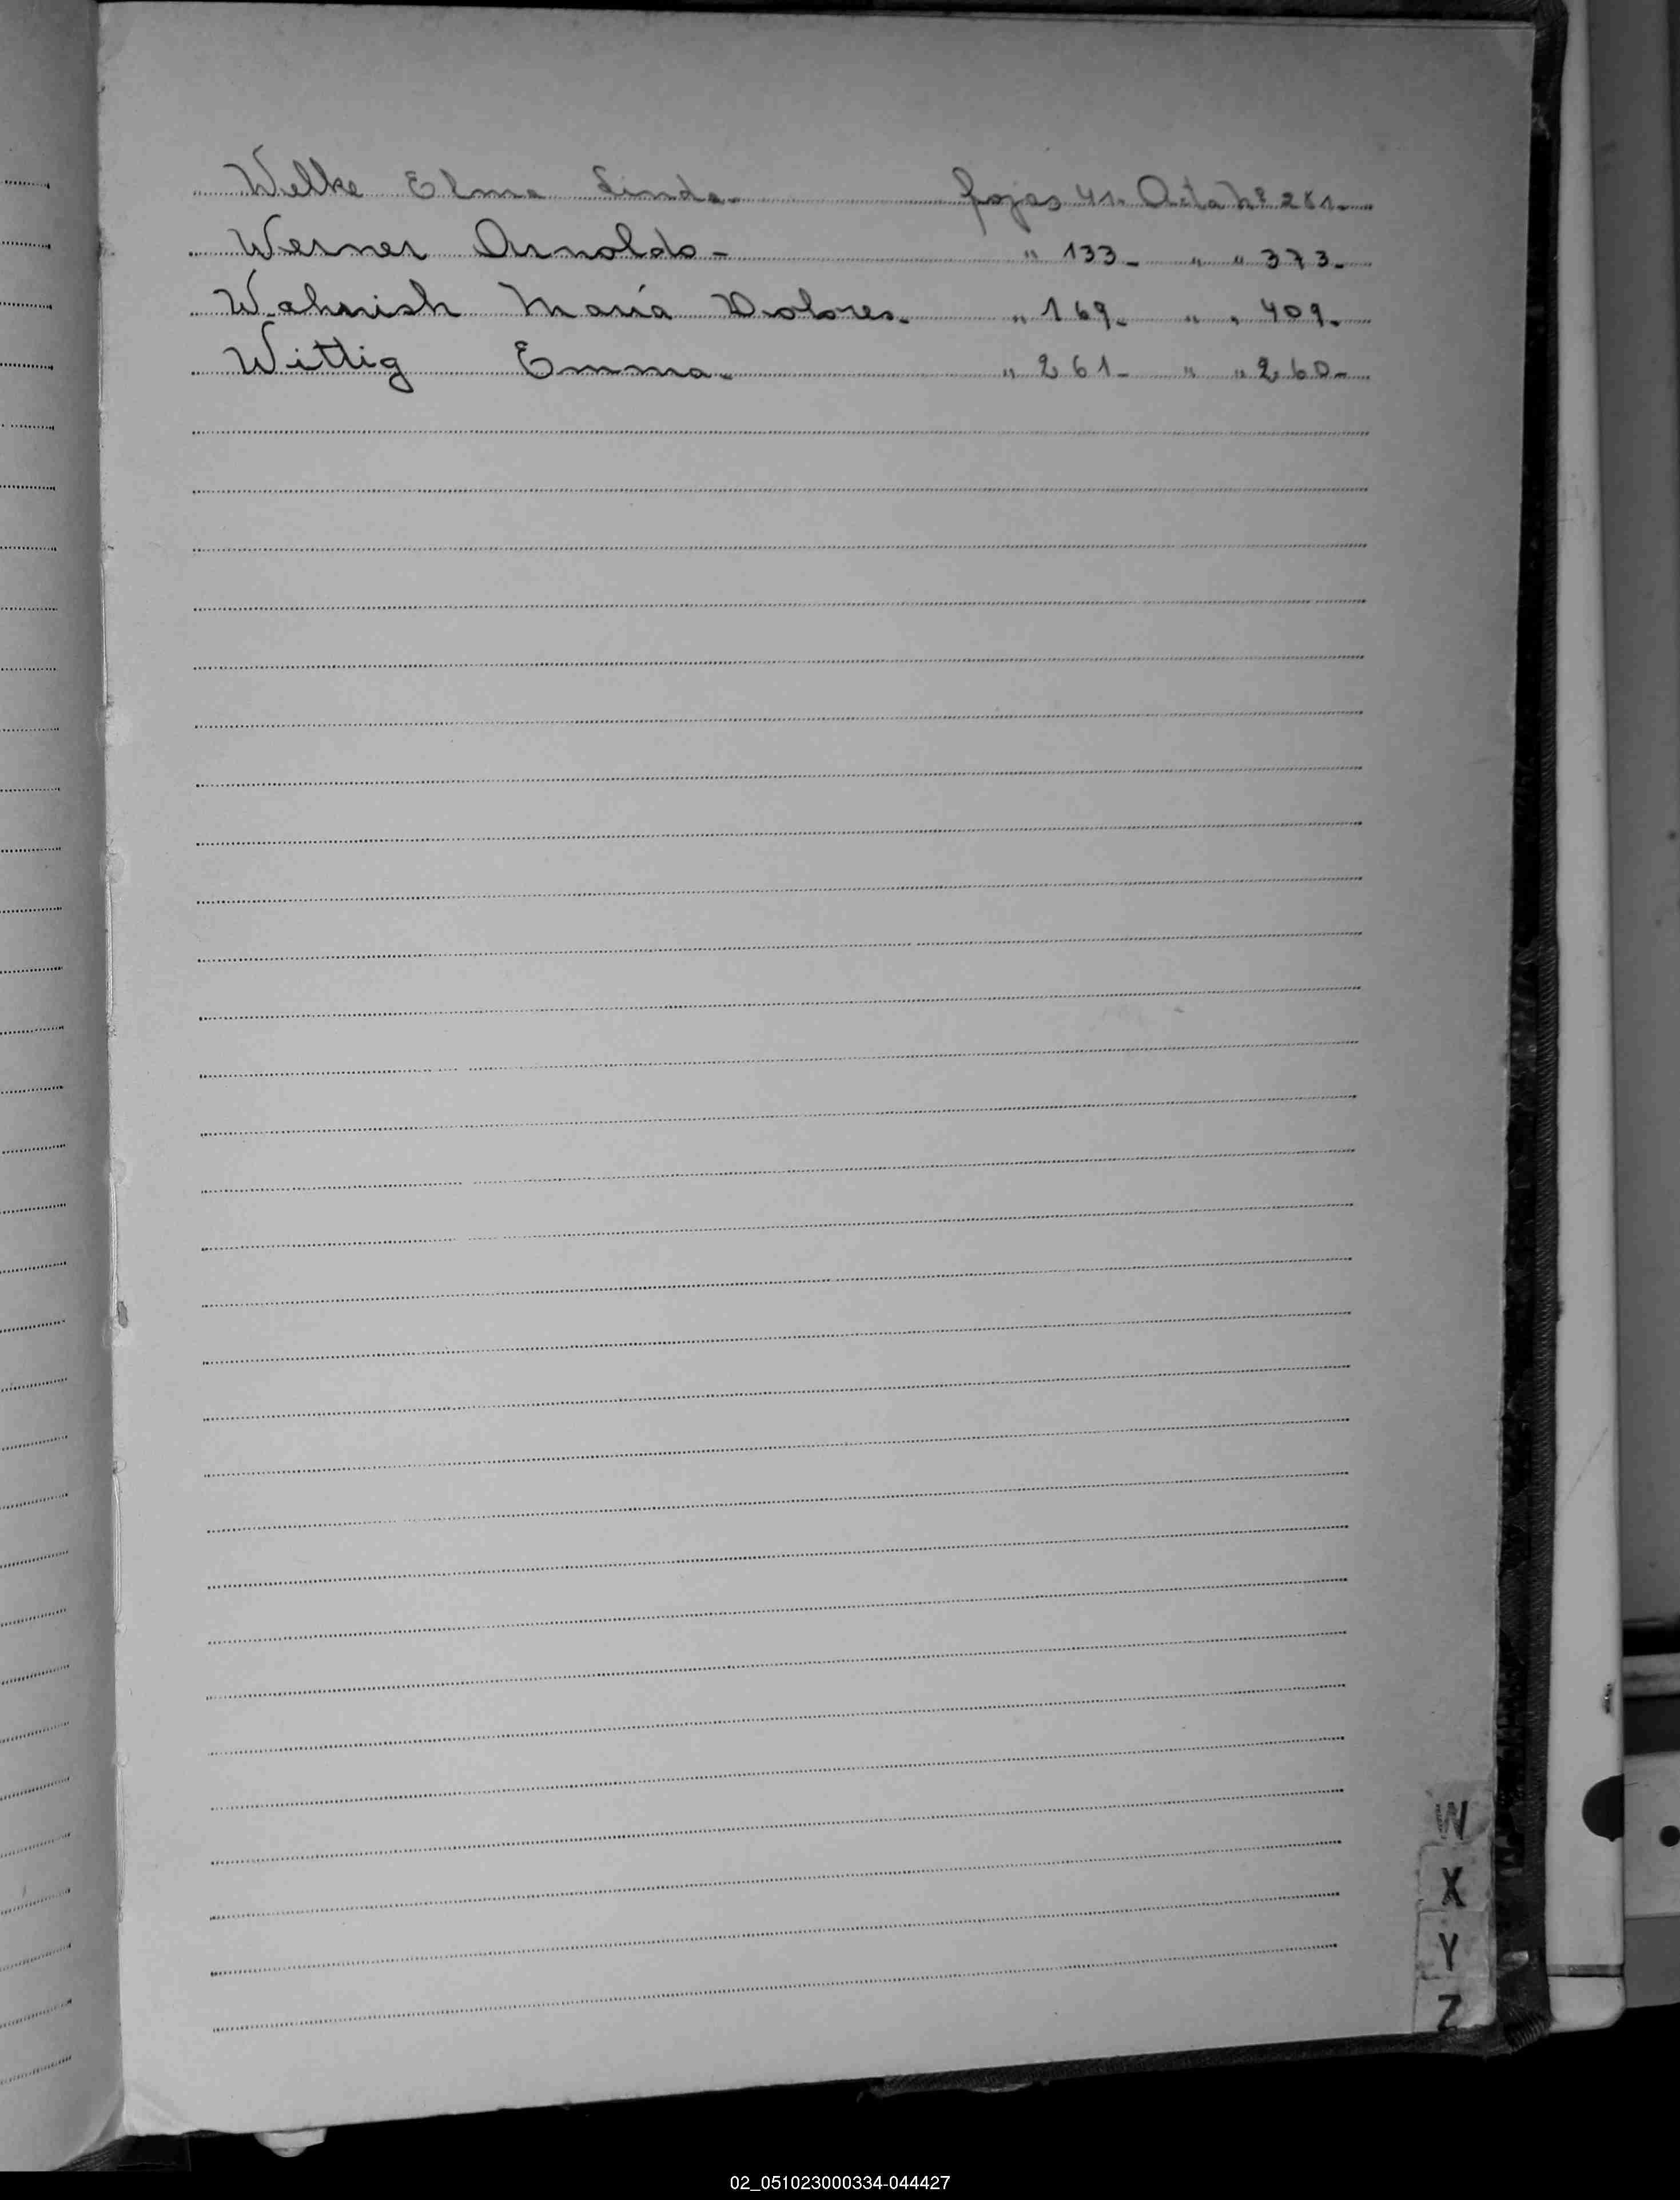 Welke Elma Linda. fojas 41. Acta Nº 281.
Werner Arnoldo - " 133 - " " 373 -
Wahnish María Dolores. " 169 - " " 409 -
Wittig Emma. " 261 - " " 260 -
W
X
Y
Z
02_051023000334-044427